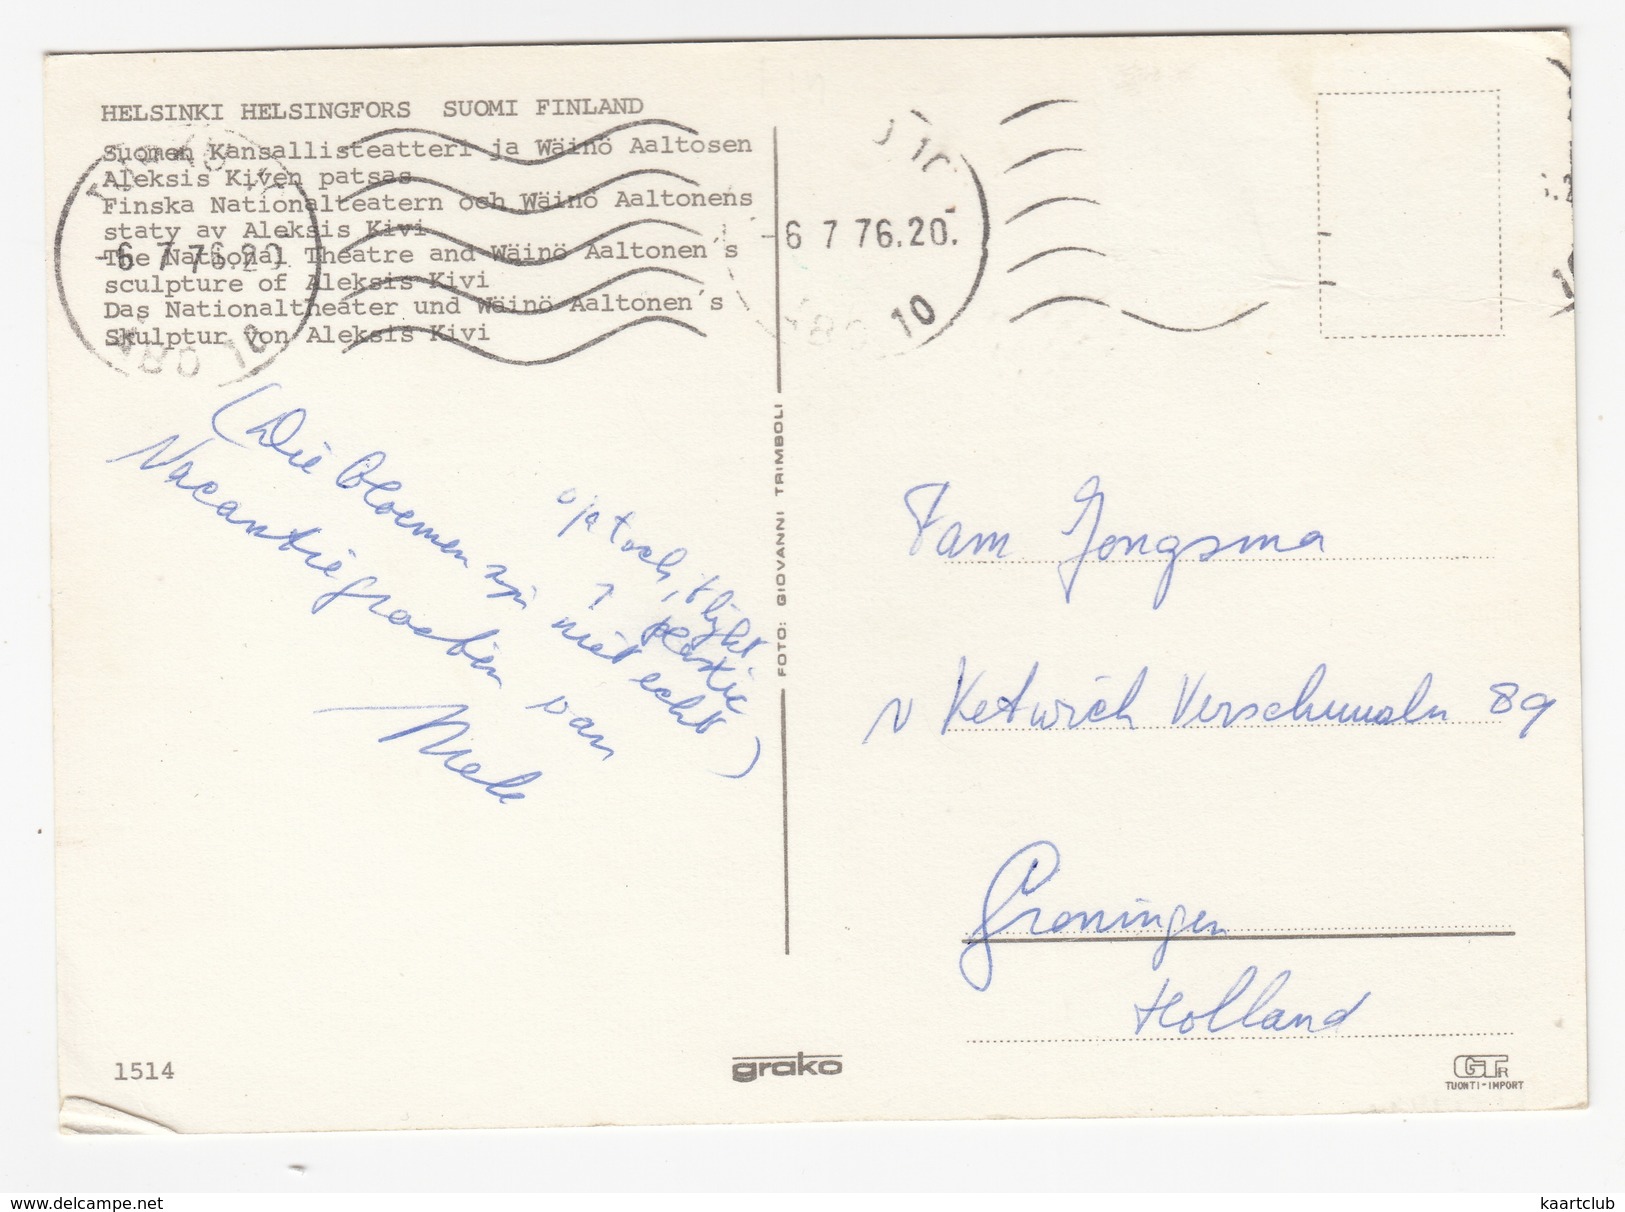 HELSINKI HELSINGFORS SUOMI FINLAND
Suomen Kansallisteatteri ja Wäinö Aaltosen
Aleksis Kiven patsas
Finska Nationalteatern och Wäinö Aaltonens
staty av Aleksis Kivi
The National Theatre and Wäinö Aaltonen´s
sculpture of Aleksis Kivi
Das Nationaltheater und Wäinö Aaltonen´s
Skulptur von Aleksis Kivi
-6 7 76.20
10
-6 7 76.20.
10
(Die bloemen zijn niet echt)
oja toch, 't lijkt
plastic
Vacantiegroeten van
FOTO: GIOVANNI TRIMBOLI
Fam Jongsma
v Ketwich Verschuurln 89
Groningen
Holland
1514
grako
GTR
TUONTI-IMPORT
kaartclub